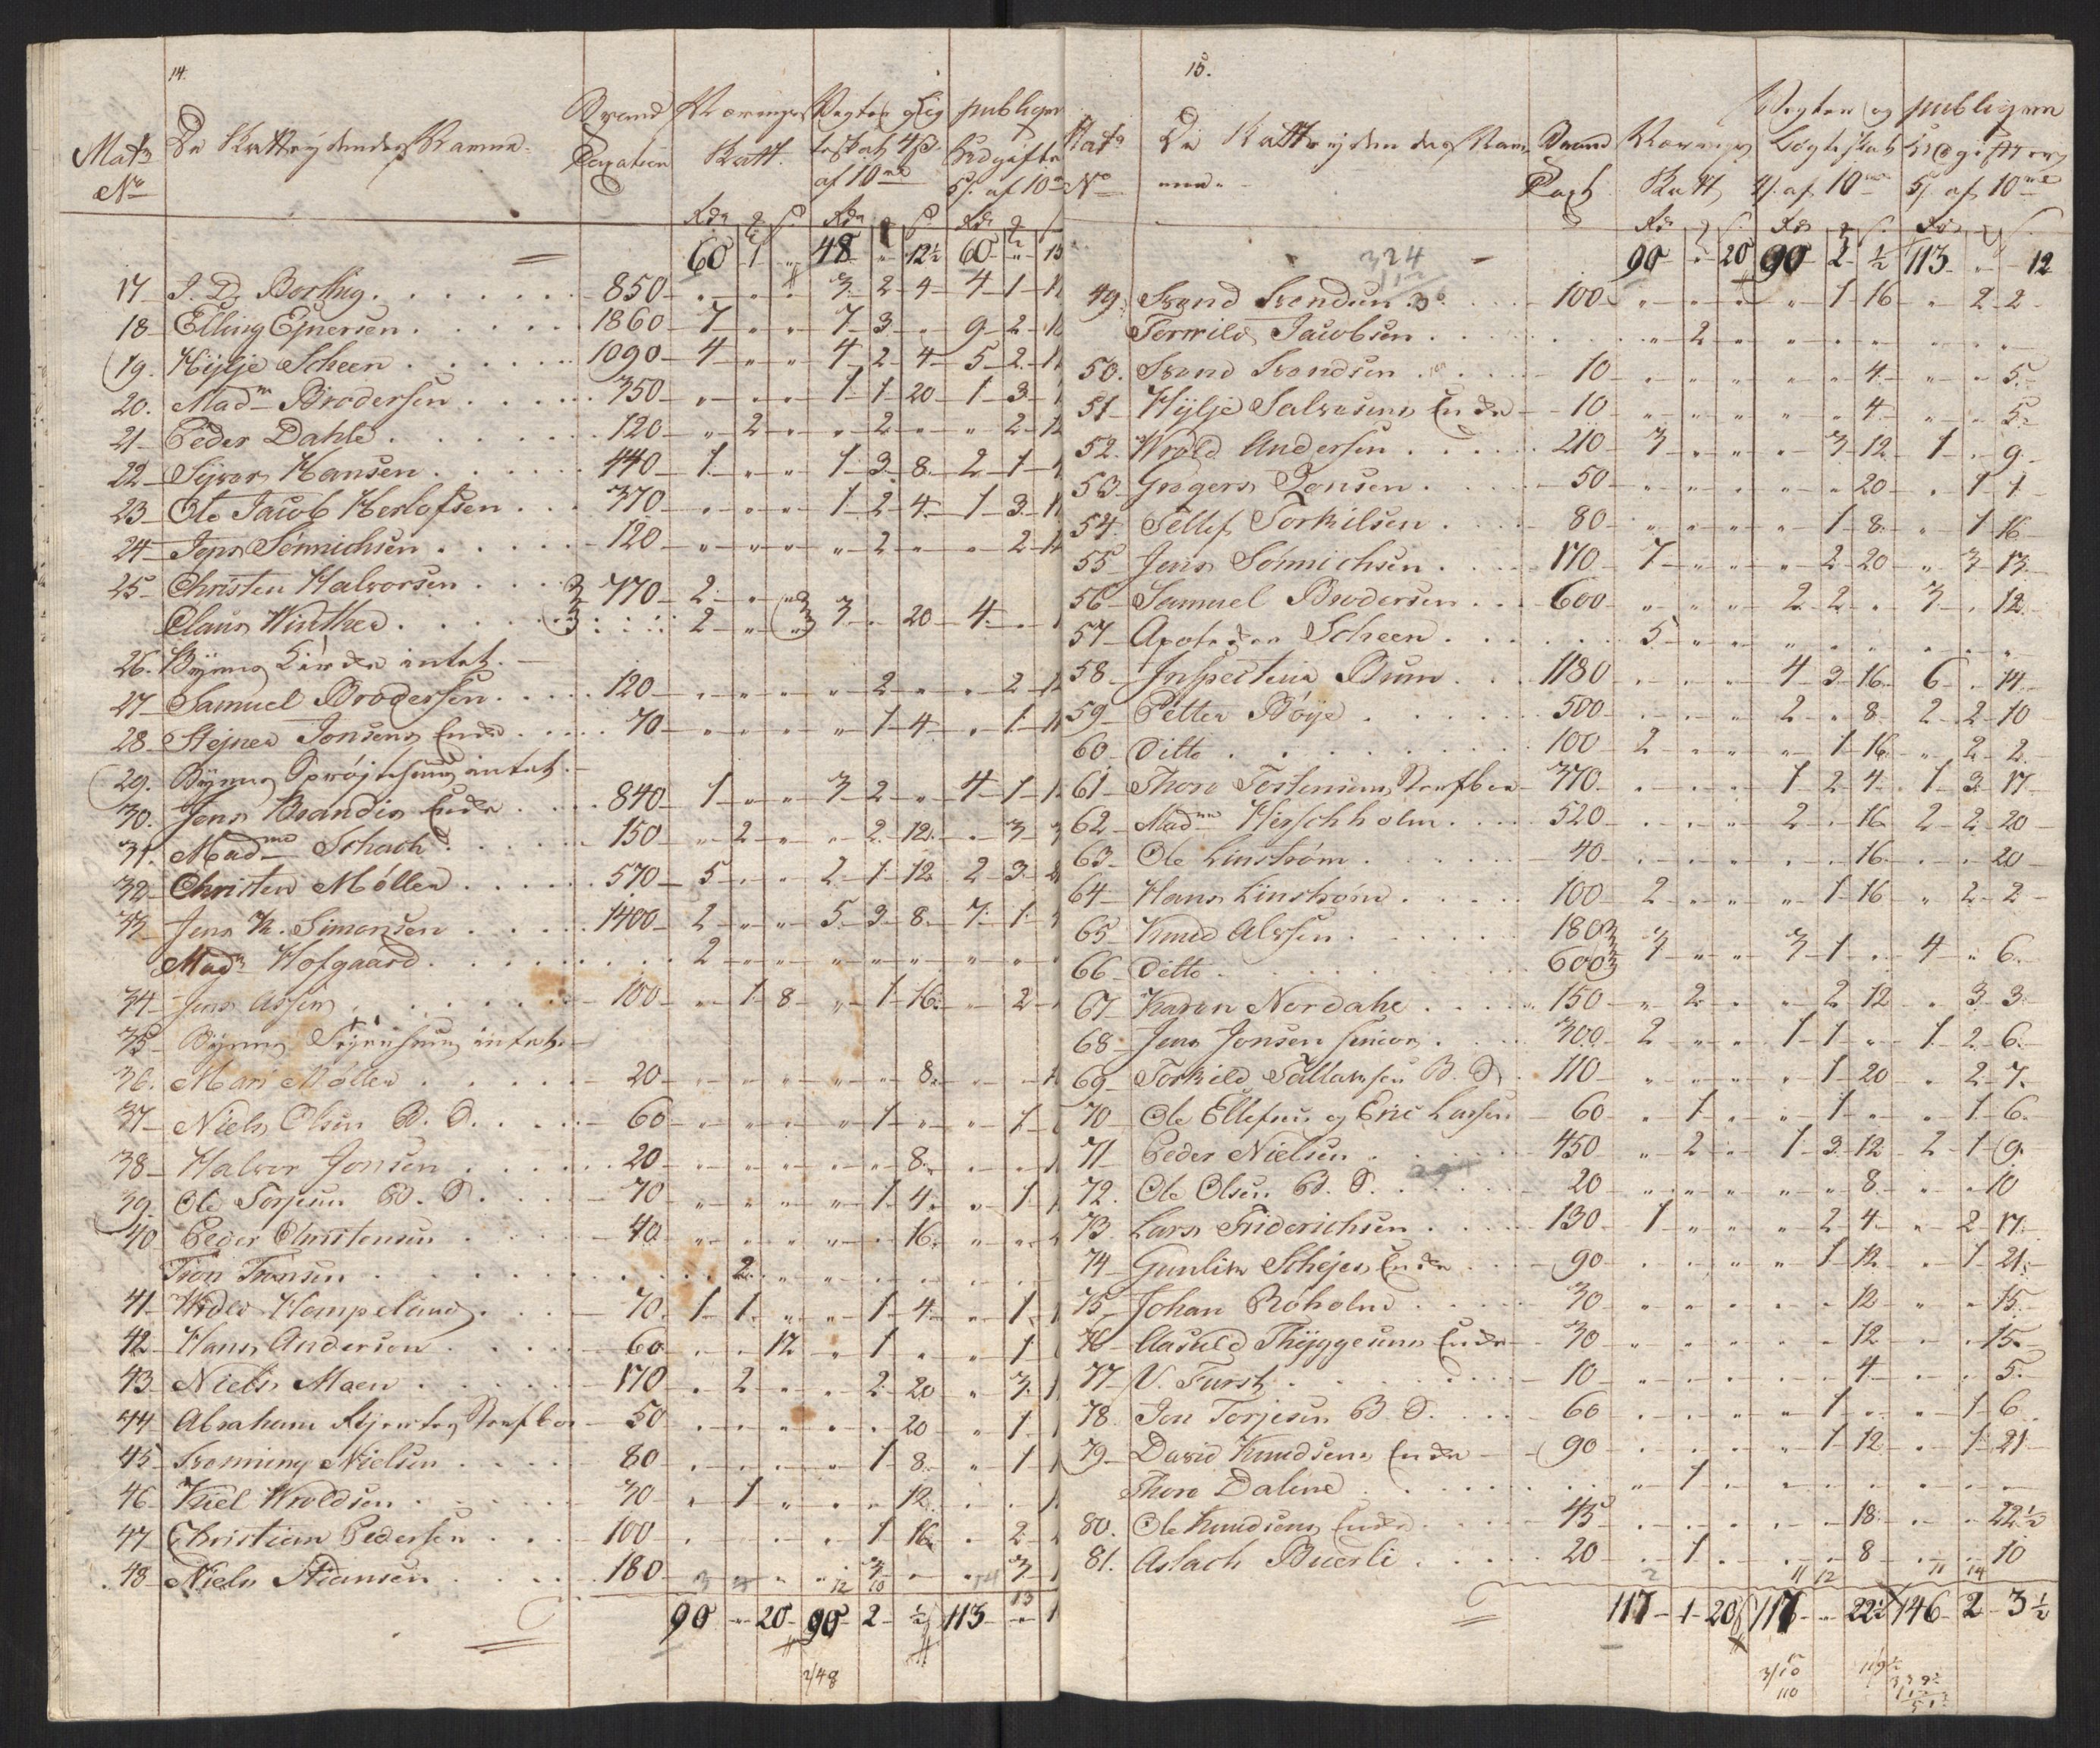 14.
Mat: No De Skatteydendes Navne. Brand Taxation Nærings Skatt. Vegter og Lig teskat 4 s. af 10 publique Udgifter 5 s. af 10
60 1 " 48 " 12½ 60 " 13
17 I. D. Borthig 850 " " " 3 2 4 4 1
18 Elling Ejnersen 1860 7 " " 7 3 " 9 2
19. Hylje Scheen 1090 4 " " 4 2 4 5 2
20. Mad Brodersen 350 " " " 1 1 20 1 3
21 Peder Dahle 120 " 2 " " 2 " " 2
22 Syvar Hansen 440 1 " " 1 3 8 2 1
23 Ole Jacob Herlofsen 370 " " " 1 2 4 1 3
24 Jens Sønnichsen 120 " " " " 2 " " 2
25 Christen Halvorsen 770 2 " "
Claus Winther 2 " " 3 " 20 4 "
26. Byens Kirke intet.
27 Samuel Brodersen 120 " " " " 2 " " 2
28 Stejner Jonsens Enke 70 " " " " 1 4 " 1
29. Byens Sprøjtehuus intet.
30. Jens Brandis Enke 840 1 " " 3 2 " 4 1
31. Mad Schach 150 " 2 " " 2 12 " 3
32 Christen Møller 570 5 " " 2 1 12 2 3
33 Jens K. Simonsen 1400 2 " " 5 3 8 7 1
Mad Hofgaard 2 " " " " " " "
34 Jens Assen 100 " 1 8 " 1 16 " 2
35 Byens intet
36. Mari Møller 20 " " " " " 8 " "
37 Niels Olsen B. S. 60 " " " " 1 " " 1
38 Halvor Jonsen 20 " " " " " 8 " "
39. Ole Torjesen B. S. 70 " " " " 1 4 " 1
40 Peder Christensen 40 " " " " " 16 " "
Tron Tronsen " 2 " " " " " "
41 Hampeland 70 1 1 " " 1 4 " 1
42 Hans Andersen 60 " " 12 " 1 " " 1
43 Niels Maen 170 " 2 " " 2 20 " 3
44 Abraham 50 " " " " " 20 " 1
45 Svenning Nielsen 80 " " " " 1 8 " 1
46 Kiel Wroldsen 30 " 1 " " " 12 " "
47 Christian Pedersen 100 " " " " 1 16 " 2
48 Niels Stiansen 180 " " " " 3 " " 3
90 " 20 90 2 ½ 113 "
2/48
15.
Mat: No De Skatteydendes Navne. Brand Taxt Nærings Skatt Vegter og Løgteskat 4 s. af 10 publique Udgifter 5 s. af 10
324
90 " 20 90 2 ½ 113 " 12
49. Svend Svendsen 100 " " " " 1 16 " 2 2
Torkild Jacobsen " 2 " " " " " " "
50. Svend Svendsen 10 " " " " " 4 " " 5
51 Hylje Salvesens Enke 10 " " " " " 4 " " 5
52. Wrold Andersen 210 3 " " " 3 12 1 " 9
53 Gregers Jonsen 50 " " " " " 20 " 1 1
54. Tellef Torkilsen 80 " " " " 1 8 " 1 16
55 Jens Sønnichsen 170 7 " " " 2 20 " 3 13
56 Samuel Brodersen 600 " " " 2 2 " 3 " 12
57 Apoteker Scheen 5 " " " " " " " "
58 Inspecteur Brun 1180 " " " 4 3 16 6 " 14
59 Petter Bøye 500 " " " 2 " 8 2 2 10
60 Ditto 100 2 " " " 1 16 " 2 2
61 Thore Tostensens 370 " " " 1 2 4 1 3 17
62 Mad Hirschholm 520 " " " 2 " 16 2 2 20
63 Ole Linstrøm 40 " " " " " 16 " " 20
64 Hans Linstrøm 100 2 " " " 1 16 " 2 2
65 Knud Alvsen 180
66 Ditto 600 7 " " 3 1 " 4 " 6
67 Karen Nordahl 150 " 2 " " 2 12 " 3 3
68 Jens Jonsen Senior 300 2 " " 1 1 " 1 2 6
69 Torkild Tallaksen B. S. 110 " " " " 1 20 " 2 7
70 Ole Ellefsen og Eric Larsen 60 " 1 " " 1 " " 1 6
71 Peder Nielsen 450 " 2 " 1 3 12 2 1 9
72. Ole Olsen B. S. 20 " " " " " 8 " " 10
73 Lars Friderichsen 130 1 " " " 2 4 " 2 17
74 Gunlik Schejes Enke 90 " " " " 1 12 " 1 21
75 Johan Røholm 30 " " " " " 12 " " 15
76 Aasuld Thyggesens Enke 30 " " " " " 12 " " 15
77 N. Furst 10 " " " " " 4 " " 5
78 Jon Torjesen B. S. 60 " " " " 1 " " 1 6
79 David Knudsens Enke 90 " " " " 1 12 " 1 21
Thore Daline " 1 " " " " " " "
80. Ole Knudsens Enke 45 " " " " " 18 " " 22½
81. Aslach Buerli 20 " 1 " " " 8 " " 10
117 1 20 117 " 22½ 146 2 3½